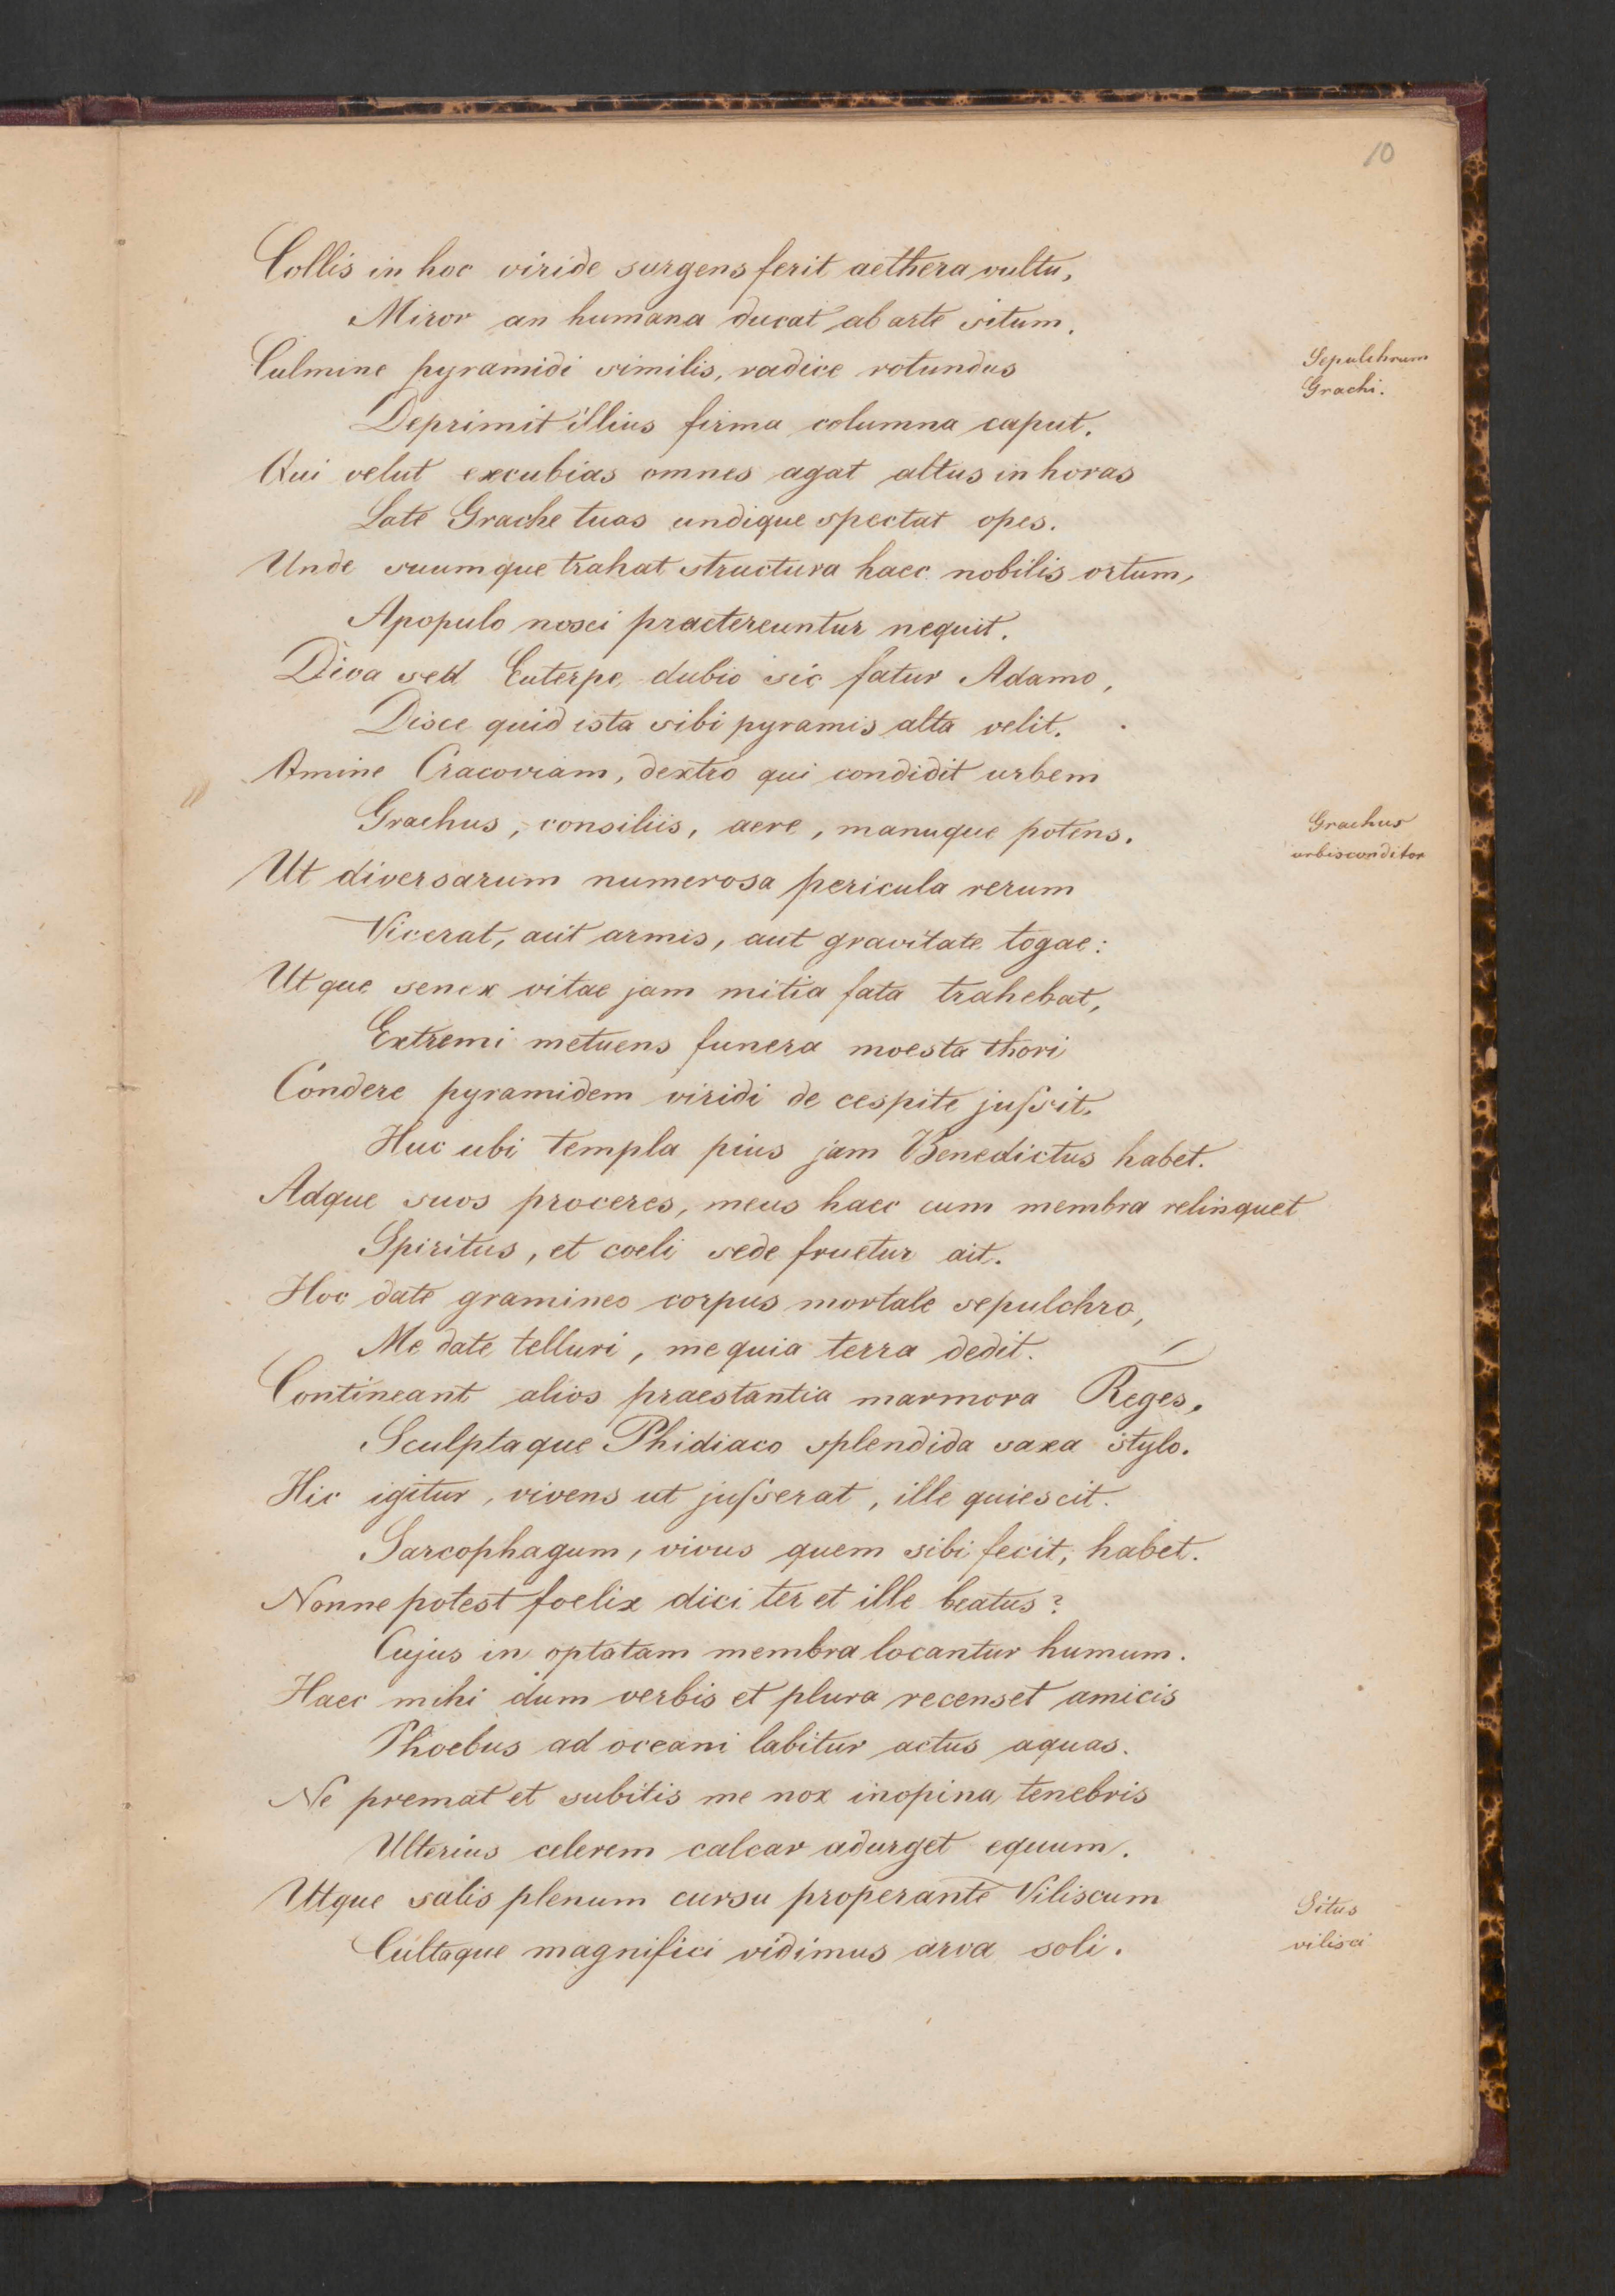 10
Collis in hoc viride surgens ferit aethera vultu,
Miror an humana ducat ab arte situm.
Culmine pyramidi similis, radice rotundus
Sepulchrum
Grachi.
Deprimit illius firma columna caput.
Qui velut excubias omnes agat altus in horas
Late Grache tuas undique spectat opes.
Unde suumque trahat structura haec nobilis ortum,
Apopulo nosci praetereuntur nequit.
Diva sed Euterpe dubio sic fatur Adamo,
Disce quid ista sibi pyramis alta velit.
Omine Cracoviam, dextro qui condidit urbem
Grachus, consiliis, aere, manuque potens.
Grachus
urbis conditor
Ut diversarum numerosa pericula rerum
Vicerat, aut armis, aut gravitate togae:
Utque senex vitae jam mitia fata trahebat,
Extremi metuens funera moesta thori
Condere pyramidem viridi de cespite juſsit.
Huc ubi templa pius jam Benedictus habet.
Adque suos proceres, meus haec cum membra relinquet
Spiritus, et coeli sede fruetur ait.
Hoc date gramineo corpus mortale sepulchro,
Me date telluri, me quia terra dedit.
Contineant alios praestantia marmora Reges,
Sculptaque Phidiaco splendida saxa stylo.
Hic igitur, vivens ut juſserat, ille quiescit.
Sarcophagum, vivus quem sibi fecit, habet.
Nonne potest foelix dici ter et ille beatus?
Cujus in optatam membra locantur humum.
Haec mihi dum verbis et plura recenset amicis
Phoebus ad oceani labitur actus aquas.
Ne premat et subitis me nox inopina tenebris
Ulterius celerem calcar adurget equum.
Utque salis plenum cursu properante Viliscum
Cultaque magnifici vidimus arva soli.
Situs
vilisci